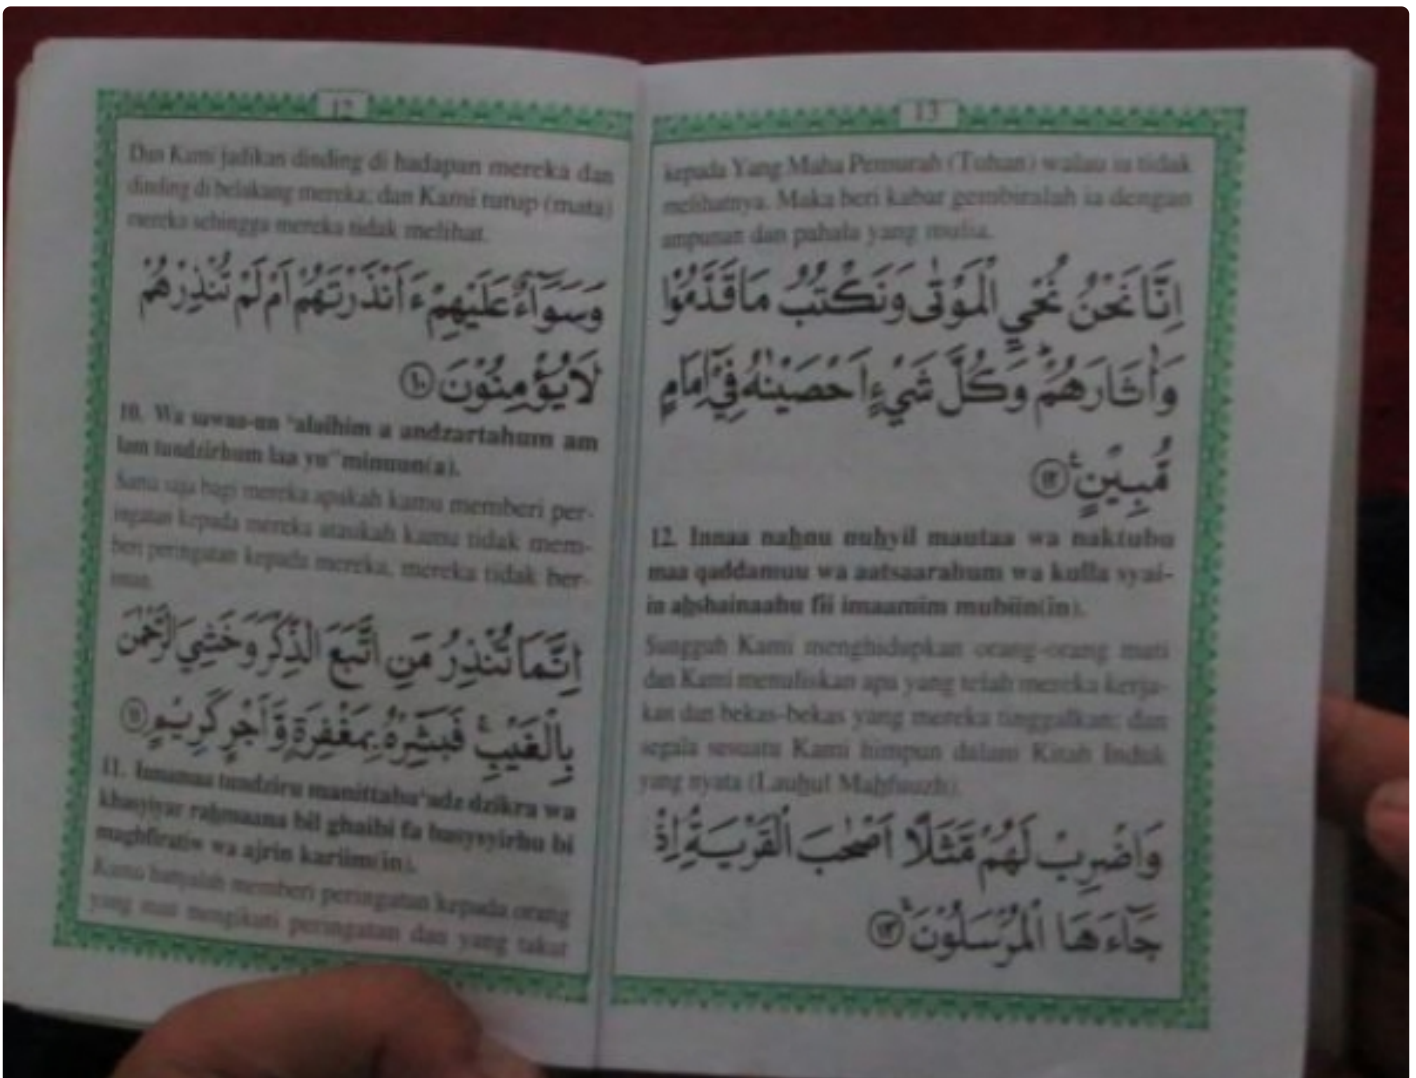 12
Dan Kami jadikan dinding di hadapan mereka dan
dinding di belakang mereka; dan Kami tutup (mata)
mereka sehingga mereka tidak melihat.
وَسَوَآءٌ عَلَيْهِمْ ءَاَنْذَرْتَهُمْ اَمْ لَمْ تُنْذِرْهُمْ
لَايُؤْمِنُوْنَ ۝١٠
10. Wa sawaa-un ‘alaihim a andzartahum am
lam tundzirhum laa yu’minuun(a).
Sama saja bagi mereka apakah kamu memberi per-
ingatan kepada mereka ataukah kamu tidak mem-
beri peringatan kepada mereka, mereka tidak ber-
iman.
اِنَّمَا تُنْذِرُ مَنِ اتَّبَعَ الذِّكْرَ وَخَشِيَ الرَّحْمٰنَ
بِالْغَيْبِۚ فَبَشِّرْهُ بِمَغْفِرَةٍ وَّاَجْرٍ كَرِيْمٍ ۝١١
11. Innamaa tundziru manittaba‘adz dzikra wa
khasyiyar rahmaana bil ghaibi fa basysyirhu bi
maghfiratiw wa ajrin kariim(in).
Kamu hanyalah memberi peringatan kepada orang
yang mau mengikuti peringatan dan yang takut
13
kepada Yang Maha Pemurah (Tuhan) walau ia tidak
melihatnya. Maka beri kabar gembiralah ia dengan
ampunan dan pahala yang mulia.
اِنَّا نَحْنُ نُحْيِ الْمَوْتٰى وَنَكْتُبُ مَاقَدَّمُوْا
وَاٰثَارَهُمْۗ وَكُلَّ شَيْءٍ اَحْصَيْنٰهُ فِيْٓ اِمَامٍ
مُّبِيْنٍ ۝١٢
12. Innaa nahnu nuhyil mautaa wa naktubu
maa qaddamuu wa aatsaarahum wa kulla syai-
in ahshainaahu fii imaamim mubiin(in).
Sungguh Kami menghidupkan orang-orang mati
dan Kami menuliskan apa yang telah mereka kerja-
kan dan bekas-bekas yang mereka tinggalkan; dan
segala sesuatu Kami himpun dalam Kitab Induk
yang nyata (Lauhul Mahfuuzh).
وَاضْرِبْ لَهُمْ مَّثَلًا اَصْحٰبَ الْقَرْيَةِۘ اِذْ
جَآءَهَا الْمُرْسَلُوْنَۚ ۝١٣